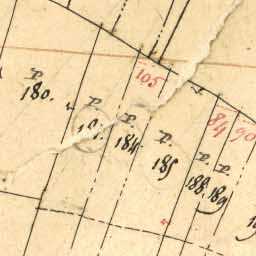 105
84
90
P.
180.
P.
P.
184.
P.
185
P.
188.
P.
189